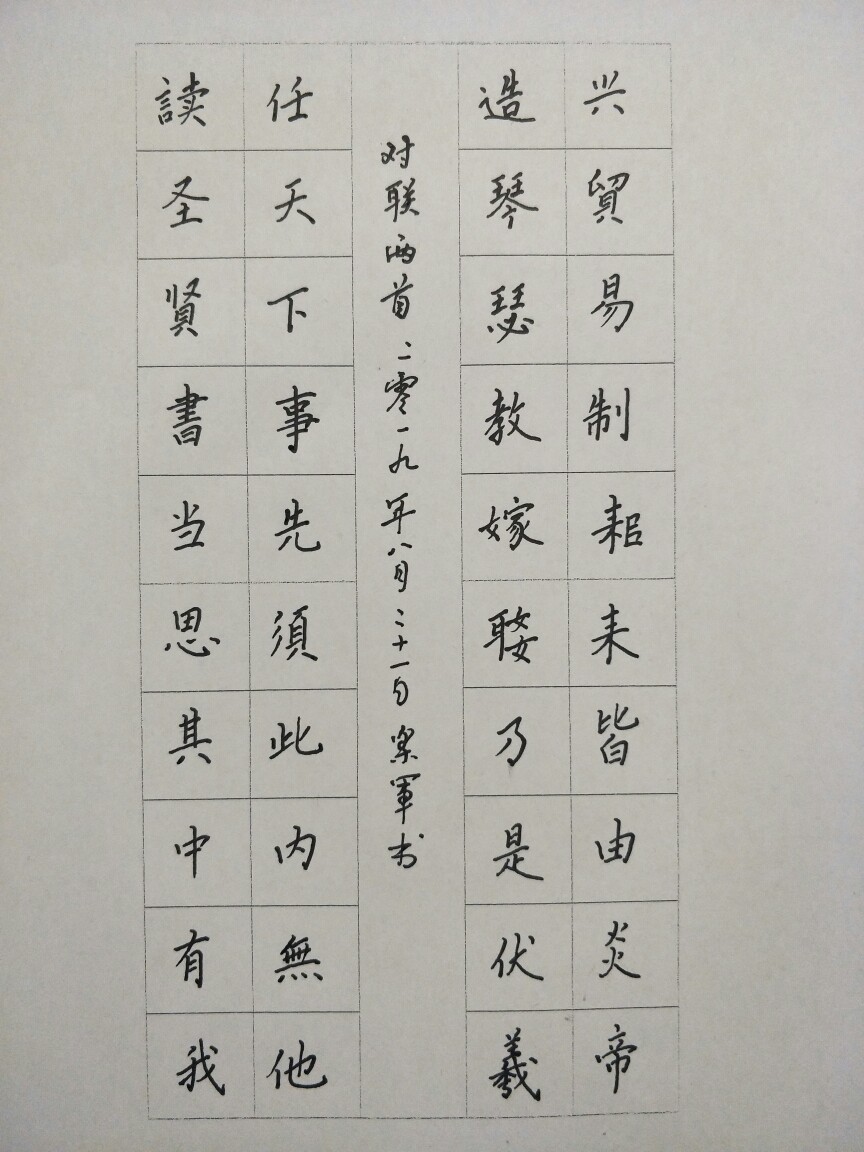 兴貿易制耜耒皆由炎帝
造琴瑟教嫁娶乃是伏羲
对联两首二零一九年八月二十一日 军书
任天下事先須此内無他
読圣賢書当思其中有我